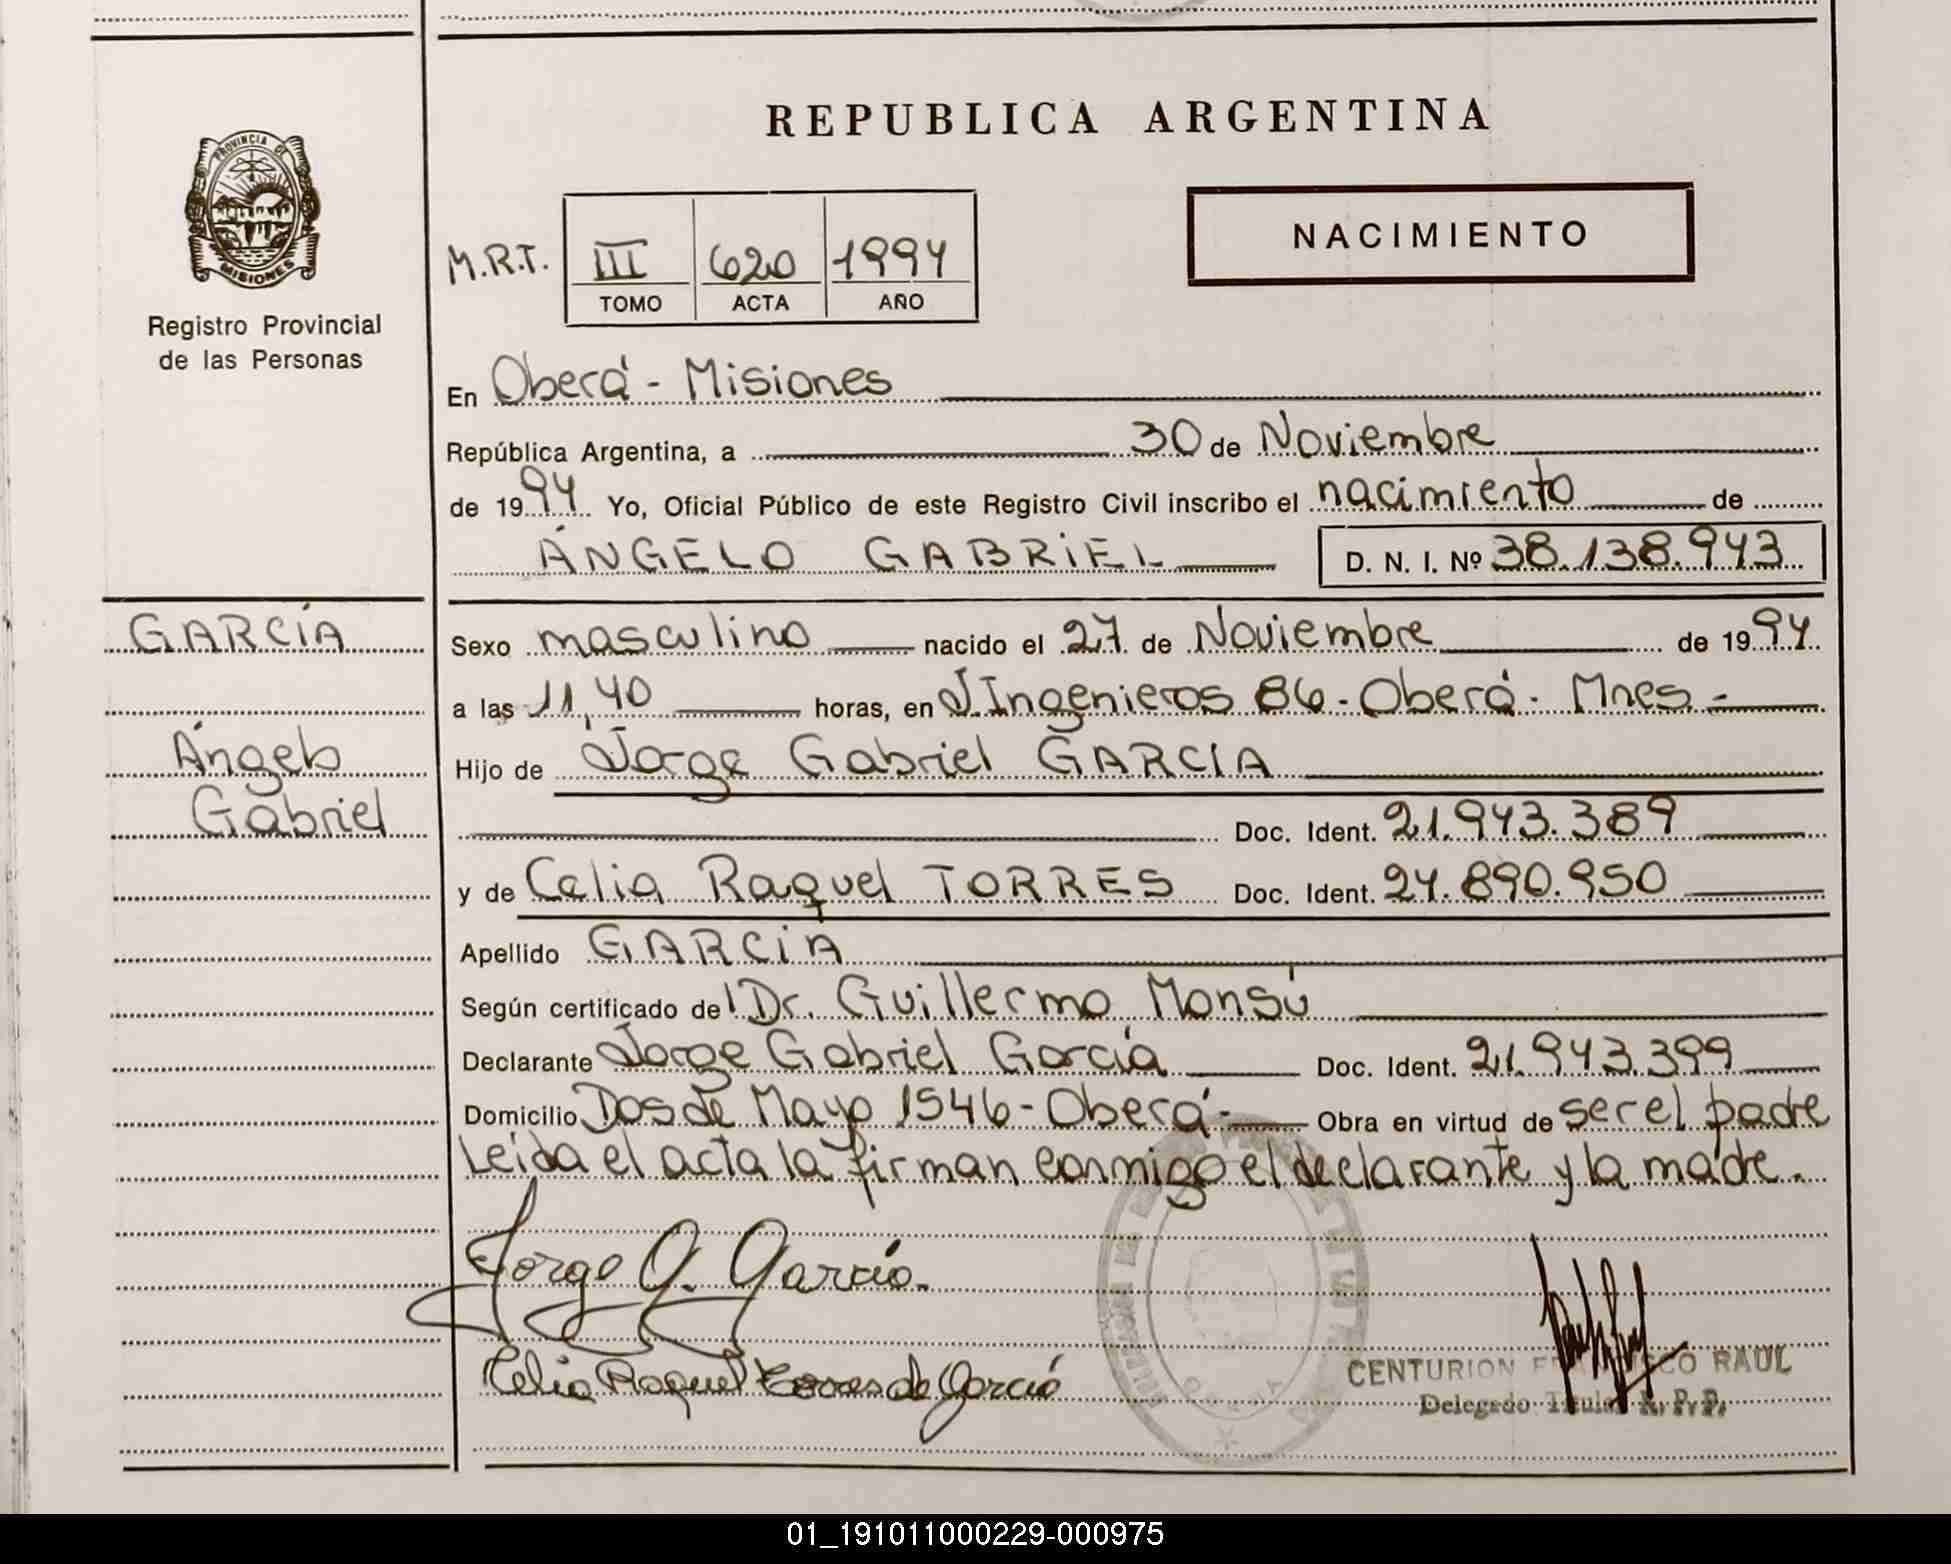 REPUBLICA ARGENTINA
PROVINCIA DE
MISIONES
Registro Provincial
de las Personas
NACIMIENTO
M.R.T. III 620 1994
TOMO ACTA AÑO
En Oberá - Misiones
República Argentina, a 30 de Noviembre
de 1994 Yo, Oficial Público de este Registro Civil inscribo el nacimiento de
ÁNGELO GABRIEL D. N. I. Nº 38.138.943
GARCÍA
Ángelo
Gabriel
Sexo masculino nacido el 27 de Noviembre de 1994
a las 11,40 horas, en J.Ingenieros 86 - Oberá - Mnes -
Hijo de Jorge Gabriel GARCIA
Doc. Ident. 21.943.389
y de Celia Raquel TORRES Doc. Ident. 24.890.950
Apellido GARCÍA
Según certificado del Dr. Guillermo Monsú
Declarante Jorge Gabriel García Doc. Ident. 21.943.399
Domicilio Dos de Mayo 1546 - Oberá - Obra en virtud de ser el padre
Leída el acta la firman conmigo el declarante y la madre.
Jorge G. García.
Celia Raquel Torres de García
CENTURION RAUL
Delegado Titular R. P. P.
01_191011000229-000975